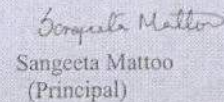 Sangeeta Mattoo
Sangeeta Mattoo
(Principal)